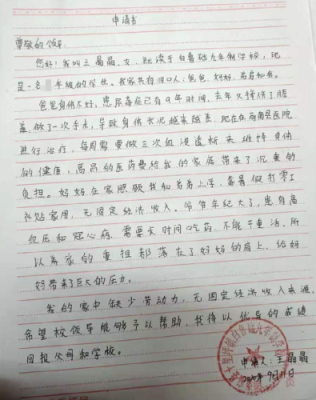 申请书
尊敬的领导:
您好!我叫王晶晶,女,就读于白鲁础九年制学校,现
是一名 年级的学生。我家共有 口人,爸爸,妈妈,
爸爸身体不好,患尿毒症已有9年时间,去年又摔伤了膝
盖,做了一次手术,导致身体状况越来越差,现在在 县医院
进行治疗,每周需要做三次血液透析来维持身体
的健康,高昂的医药费给我的家庭带来了沉重的
负担。妈妈在家照顾我和 上学,靠着做打零工
补贴家用,无固定经济收入。爷爷年纪大了,患有高
血压和冠心病,需要长时间吃药,不能干重活,所
以每家的重担都落在了妈妈的肩上,给妈
妈带来巨大的压力。
我的家中缺少劳动力,无固定经济收入来源,
希望校领导能够予以帮助,我将以优异的成绩
回报父母和学校。
申请人:王晶晶